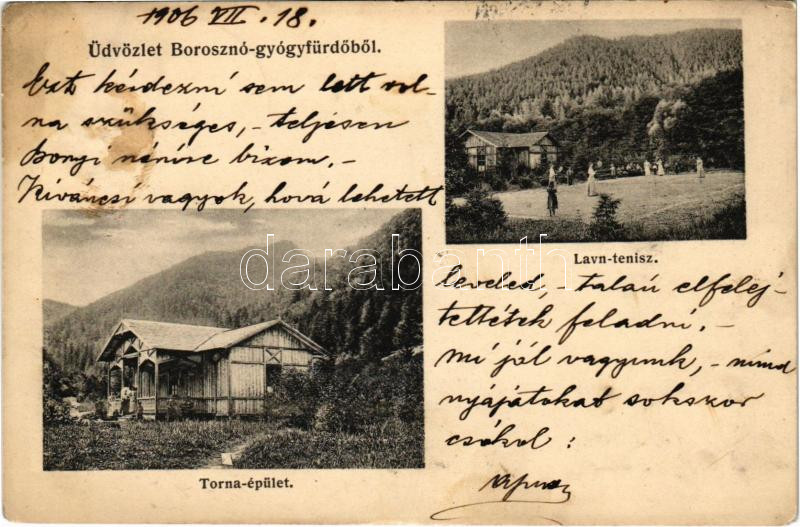 1906 VII. 18.
Üdvözlet Borosznó-gyógyfürdőből.
Ezt kérdezni sem lett vol-
na szükséges, - teljesen
Bonyi nénire bizom. -
Kiváncsi vagyok, hová lehetett
Lavn-tenisz.
leveled, - talán elfelej-
tették feladni. -
Mi jól vagyunk, - mind
nyájatokat sokszor
csókol:
Torna-épület.
darabanth